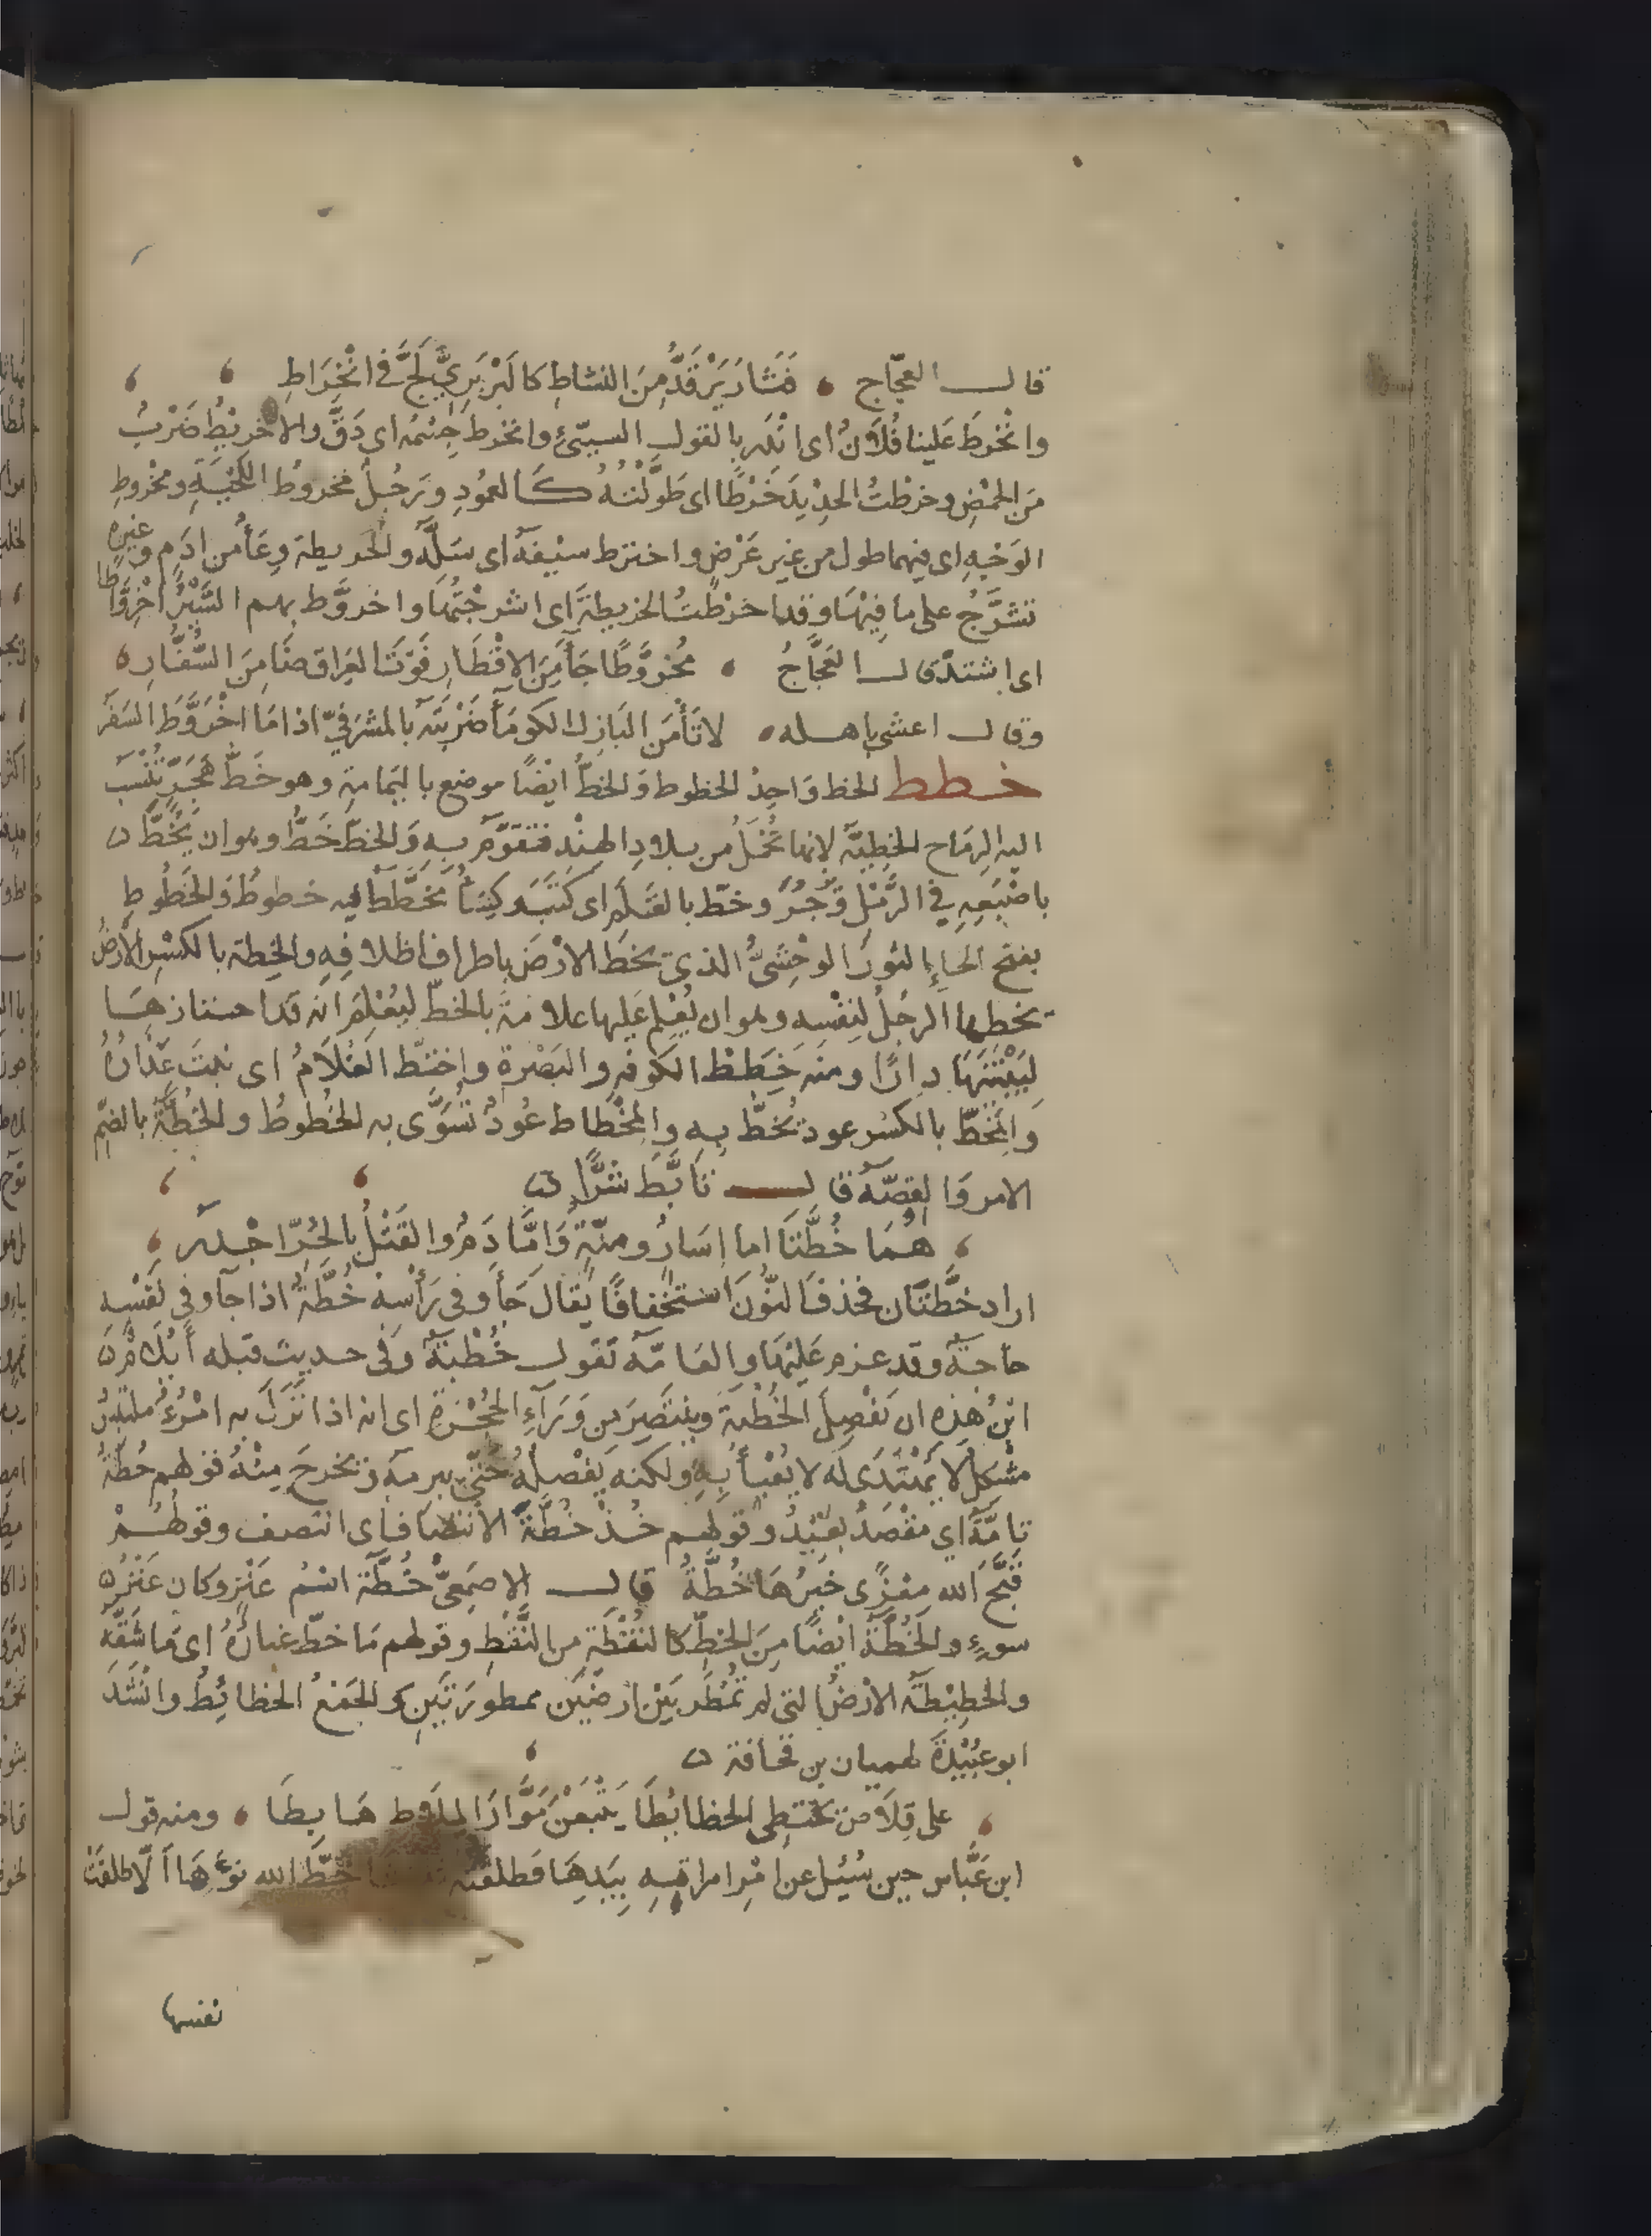 قال العجّاج فَثَارَ يَرْقَدُّ مِنَ النشاطِ كالبَرْبَرِيِّ لَجَّ في انْخِرَاطِ
وانْخَرطَ عَلينا فُلَانٌ اى انْدَرَ بالقول السيّئِ وانخرط جِسْمُه اى دَقَّ والاخريْطُ ضَرْبٌ
مِنَ الحَمْضِ وخرَطْتُ الحدِيْدَ خَرْطًا اى طَوَّلْتُهُ كَالعمُودِ ورَجُلٌ مَخروُطُ اللِّحْيَةِ ومَخْروطِ
الوَجْهِ اى فيهما طول من غير عَرْضٍ واخترط سيْفَهُ اى سَلَّه والخريطة وِعَأٌ من ادَمٍ وغيره
تشرَّجُ على ما فِيْهَا وقد اخرَطْتُ الخريطةَ اى اشرجْتُهَا واخروَّط بهم السَّيْرُ اخْرِوَّاطًا
اى اشتدّ قال العَجَّاجُ مُخروَّطًا جَأَ مِنَ الاقْطَارِ فَوْتَ العِرَاق ضنًا مِنَ السُّفَّارِ
وقال اعشى باهله لا تَأْمَن البَازِلُ الكومَأُ ضَرْبَتَه بالمَشرَفيّ اذا مَا اخْرَوَّطَ السَفَر
خطط الخط وَاحِدُ الخطوط وَالخطُّ ايْضًا موضع باليَمَامة وهو خَطُّ هَجَرَ تُنْسَبُ
اليه الرِمَاح الخطِيَّة لانها تُحْمَلُ من بلادِ الهِنْدِ فتقَوَّم بِهِ وَالخطّ خَطُّ وهو ان يَخُطَّ
باصْبَعِهِ في الرَّمْلِ وَجُرَ وخطّ بالقَلَمِ اى كَتَبَ وكِسَأٌ مُخَطَّطٌ فيه خطوطٌ وَالخَطُوطِ
بفتح الخاءِ الثورُ الوحْشيُّ الذى يخط الارْضَ باطراف اظلافِهِ والخِطة بالكسْرِ الأرضُ
يخطها الرجُلُ لنَفْسِهِ وهو ان يُعْلِم عَليها علامَةً بالخطّ ليُعْلِمَ انّه قد احتازهَا
لِيَبْنِيَهَا دارًا ومنه خِطَطُ الكوفهِ والبَصْرةِ واختَطّ الغُلَامُ اى نبَتَ عِذَارُهُ
وَالمِخَطّ بالكسْر عود يُخَطُّ بِهِ والمِخْطاط عُودٌ تُسَوَّى به الخُطوطُ والخُطَّةُ بالضّم
الامر وَالقصّه قال تابَّطَ شَرًّا
هُمَا خُطَّتَا اما إسَارٌ ومنّةٌ وَامَّا دَمٌ والقَتْلُ بالحُرّ اجْدَر
اراد خطَّتَان فحذفَ النّونَ استخفافًا يُقالَ جَأَ وفى رَأْسِهِ خُطَّةٌ اذا جآ وفى نَفْسِهِ
حاجةٌ وقد عزم عَلَيْهَا والعَامّه تَقول خُطْبَةٌ وَفى حديث قيله أيُلَامُ
ابْنُ هٰذِه ان يَفْصِلَ الخُطّةَ وينتَصِرَ مِن وَرَآءِ الحَجَزةِ اى انه اذا نَزَلَ به امْرٌ مُلتَبِسٌ
مُشْكِلٌ لا يُهْتَدَى لَه لا يَعْبأُ بِهِ ولكنه يَفْصِلُهُ حتّى يبرمه ويخرجَ مِنْهُ قولهم خُطّةٌ
نامّةٌ اي مَقْصَدٌ بَعِيْدٌ وقولهم خُذْ خُطَّةَ الانتِصَاف اى انتصف وقولهُمْ
قَبَّحَ الله مِعْزًى خيرُهَا خُطَّةُ قال الاصمَعيُّ خُطَّة اسْمُ عَنْزٍ وكان عَنْزَ
سوءٍ والخُطَّةُ ايْضًا مِنَ الخطِّ كالنُقْطَةِ من النَّقْطِ وقولهم مَا خطّ غبارَهُ اى مَا شَقّه
والخطِيْطَة الارْضُ التى لم تُمْطَر بَيْنَ ارضَيْنِ ممطورَتَيْنِ والجَمْعُ الخطائِطُ وانْشَدَ
ابو عُبَيْدَةَ لهميان بن قحَافة
على قِلَاصٍ تَخْتَطِى الخطائِطَا يَتْبَعْنَ مَوَّارَ المِلَاط مَائِطَا ومنه قول
ابن عَبَّاس حين سُئِل عن امْرِ امراتِهِ بِيَدِهَا فطلقَتْه خَطَّ الله نَوْءَهَا ألّا طلقَتْ
نفسها